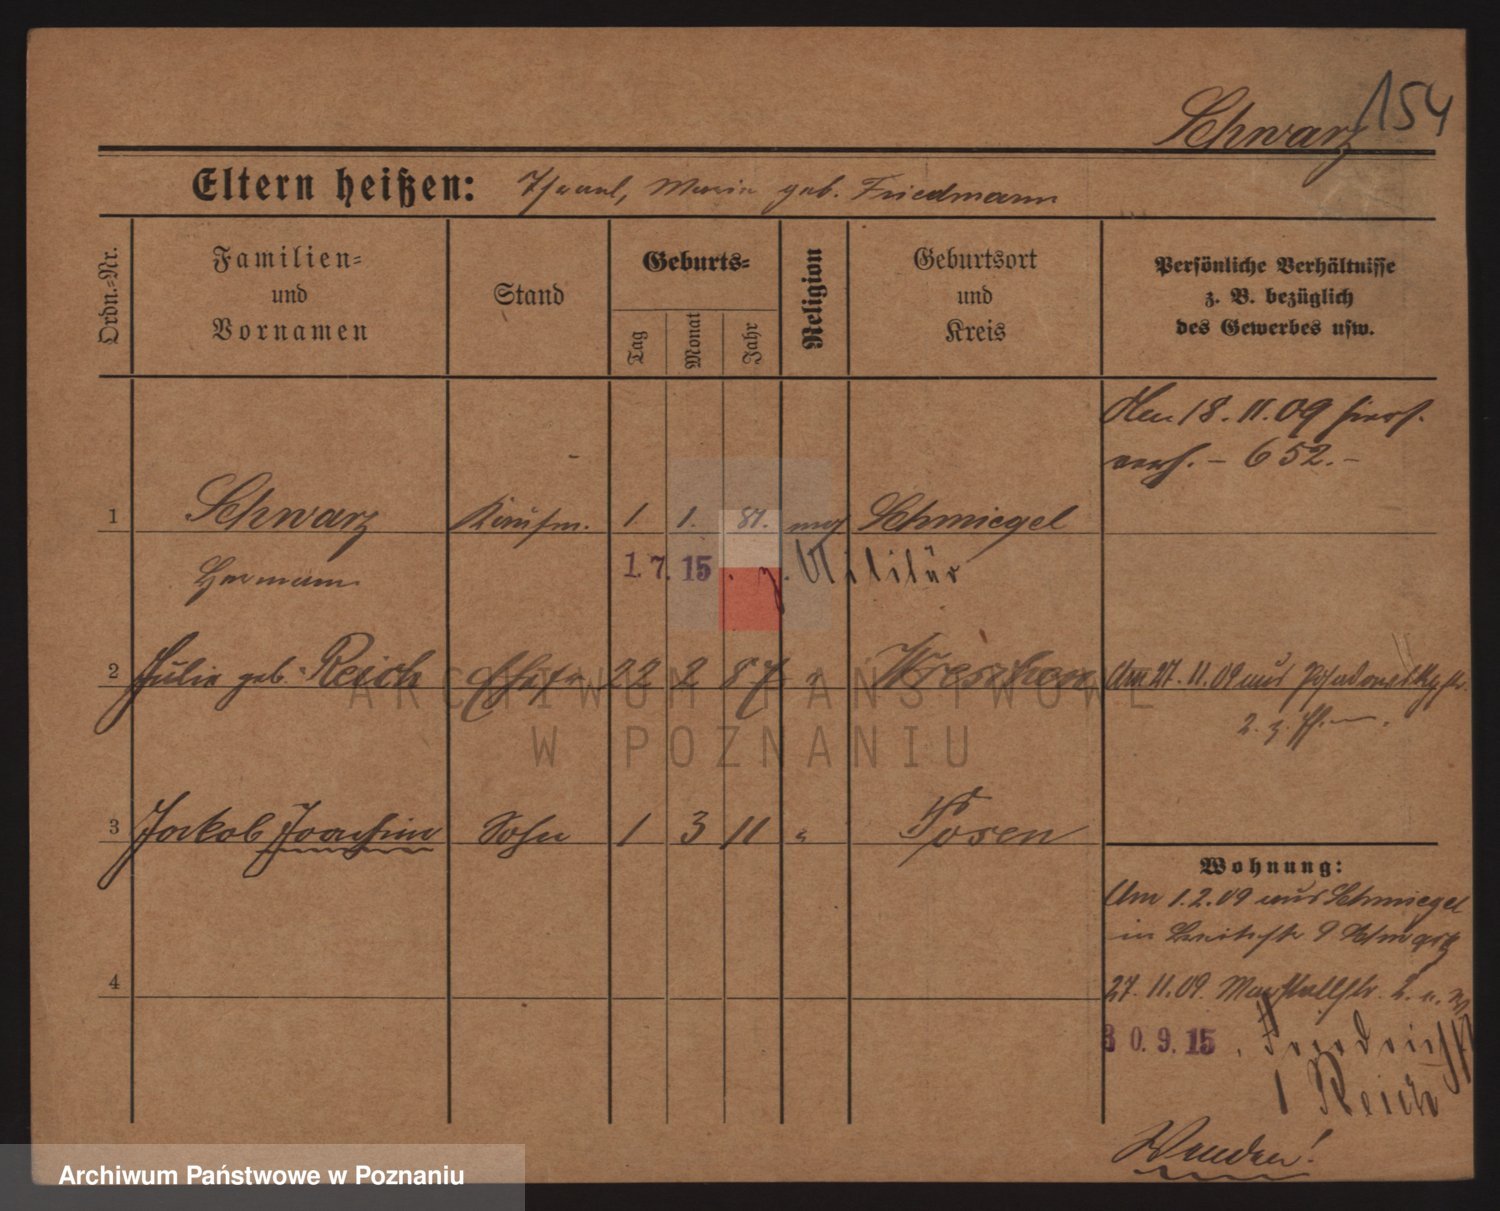 Schwarz 154
Eltern heißen: Isaaul, Maria geb. Friedmann
Ordn.-Nr.
Familien- und Vornamen
Stand
Geburts-
Tag
Monat
Jahr
Religion
Geburtsort und Kreis
Persönliche Verhältnisse z. B. bezüglich des Gewerbes usw.
Den 18.11.09 hiers.
verh. – 652. –
1 Schwarz Kaufm. 1. 1. 81. mos Schmiegel
Hermann
1. 7. 15. z. Militär
2 Julie geb. Reich Ehefr. 22 2 87 " Wreschen Am 27.11.09 aus
2. z.
3 Jackob Joachim Sohn 1 3 11 " Posen
Wohnung:
Am 1.2.09 aus Schmiegel
in Breitestr 9
4
27.11.09. Marstallstr.
30.9.15. Friedrichstr
1 Reich
Wenden!
ARCHIWUM PAŃSTWOWE
W POZNANIU
Archiwum Państwowe w Poznaniu